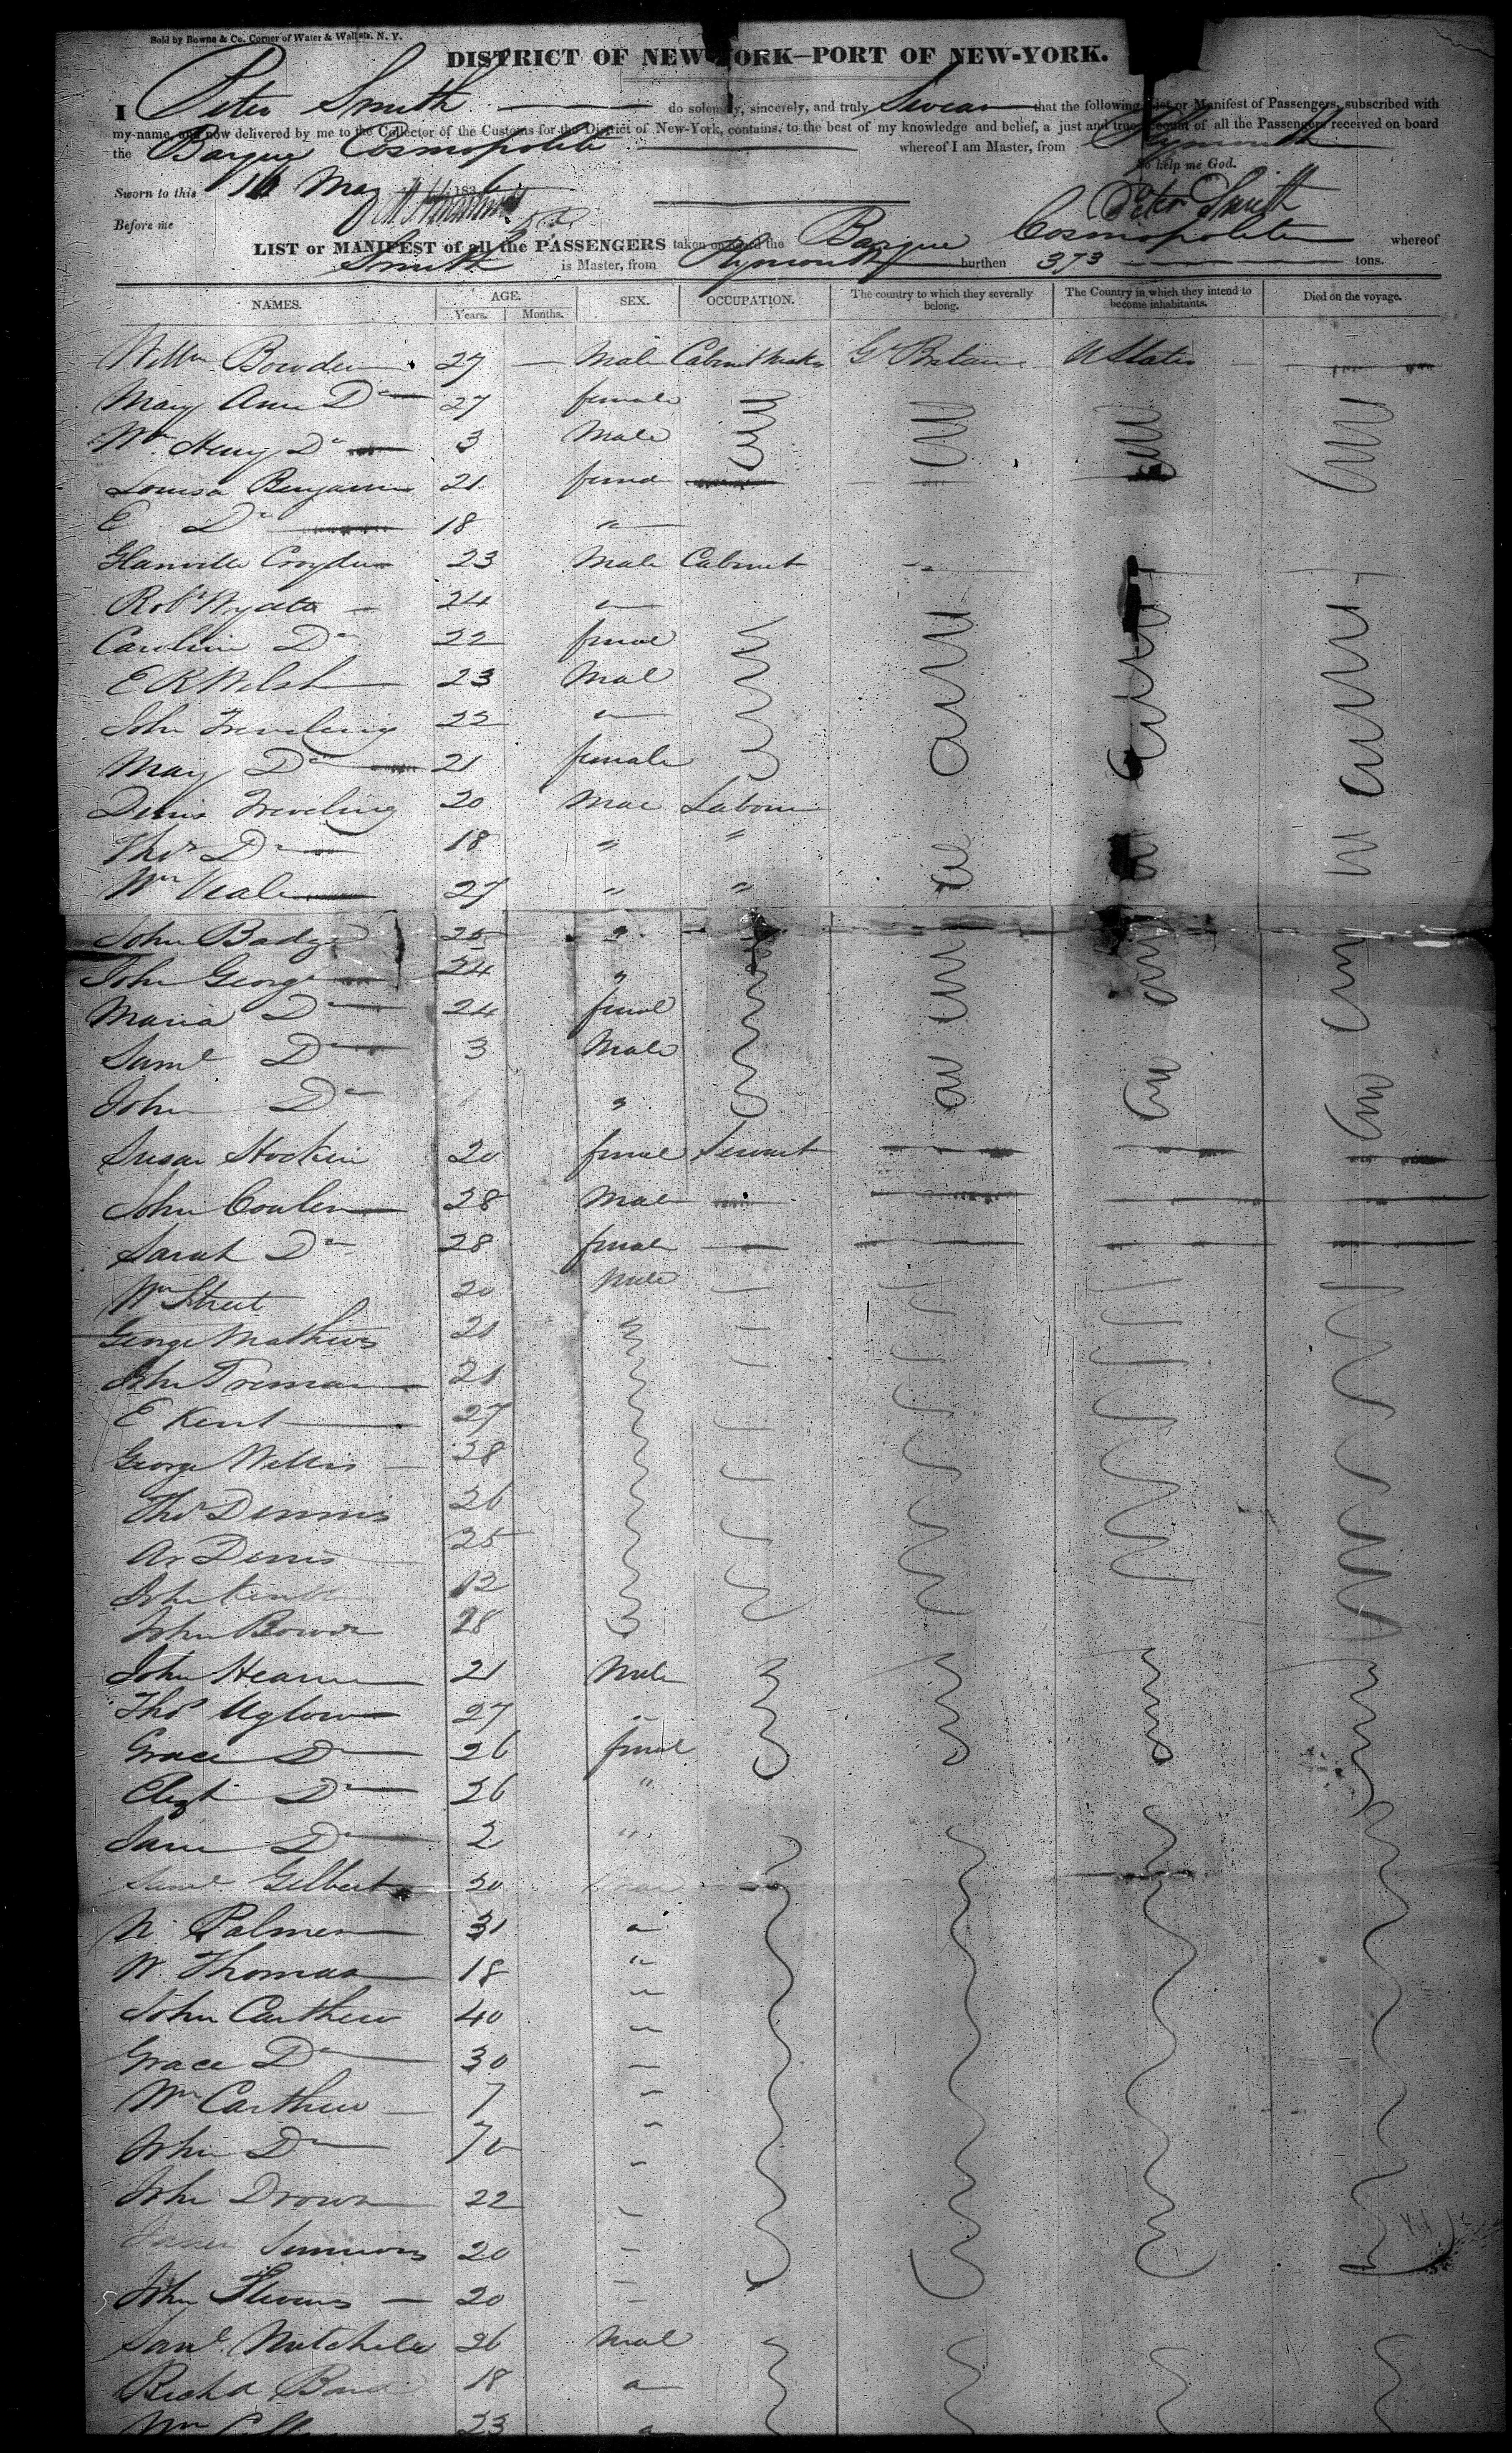 Sold by Bowne & Co. Corner of Water & Wall sts. N. Y.
DISTRICT OF NEW-YORK—PORT OF NEW-YORK.
I Peter Smith do solemnly, sincerely, and truly Swear that the following List or Manifest of Passengers, subscribed with
my name, and now delivered by me to the Collector of the Customs for the District of New-York, contains, to the best of my knowledge and belief, a just and true account of all the Passengers received on board
the Barque Cosmopolite whereof I am Master, from Plymouth
So help me God.
Sworn to this 16 May 1836
Peter Smith
Before me
LIST or MANIFEST of all the PASSENGERS taken on board the Barque Cosmopolite whereof
Smith is Master, from Plymouth burthen 373 tons.
NAMES. AGE. Years. Months. SEX. OCCUPATION. The country to which they severally belong. The Country in which they intend to become inhabitants. Died on the voyage.
Willm Bowden 27 Male Cabinet Maker Gt Britain U States
Mary Ann Do 27 female
Wm Henry Do 3 Male
Louisa Benjamin 21
E Do 18 "
Glanville Croydon 23 Male Cabinet
Robt Wyatt 24 "
Caroline Do 22
E R Welsh 23 Mal
John Treveling 22 "
Mary Do 21 female
Denis Treveling 20 Labour
Thos Do 18 " "
Wm Veale 27 " "
John Badge 25 "
John George 24 "
Maria Do 24
Saml Do 3 Male
John Do "
Susan Hockin 20 Servant
John 28 Male
Sarah Do 28 female
Wm Street 20 Male
George Mathews 20 "
John Treman 21
E Kent 27
George Willis 28
Thos Dennis 26
Denis 25
John 12
John 28
John Hearn 21 Male
Thos Uglow 27 "
Grace Do 26
Elizt Do 26 "
Jane Do 2 "
Saml Gilbert 30
N. Palmer 31 "
W. Thomas 18 "
John Carthew 40 "
Grace Do 30 "
Wm Carthew 7 "
John Do "
John Drown 22 "
James Simmons 20 "
John Stevens 20 "
Saml Mitchell 26 Mal
Richd 18 "
Wm 23 "